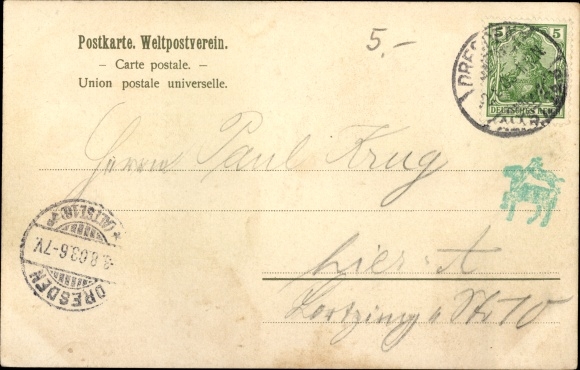 Postkarte. Weltpostverein.
– Carte postale. –
Union postale universelle.
5.-
5 5
DEUTSCHES REICH
DRESDEN
Herrn Paul Krug
hier-A
Lortzing Str 10
DRESDEN
3.8.03.6-7V.